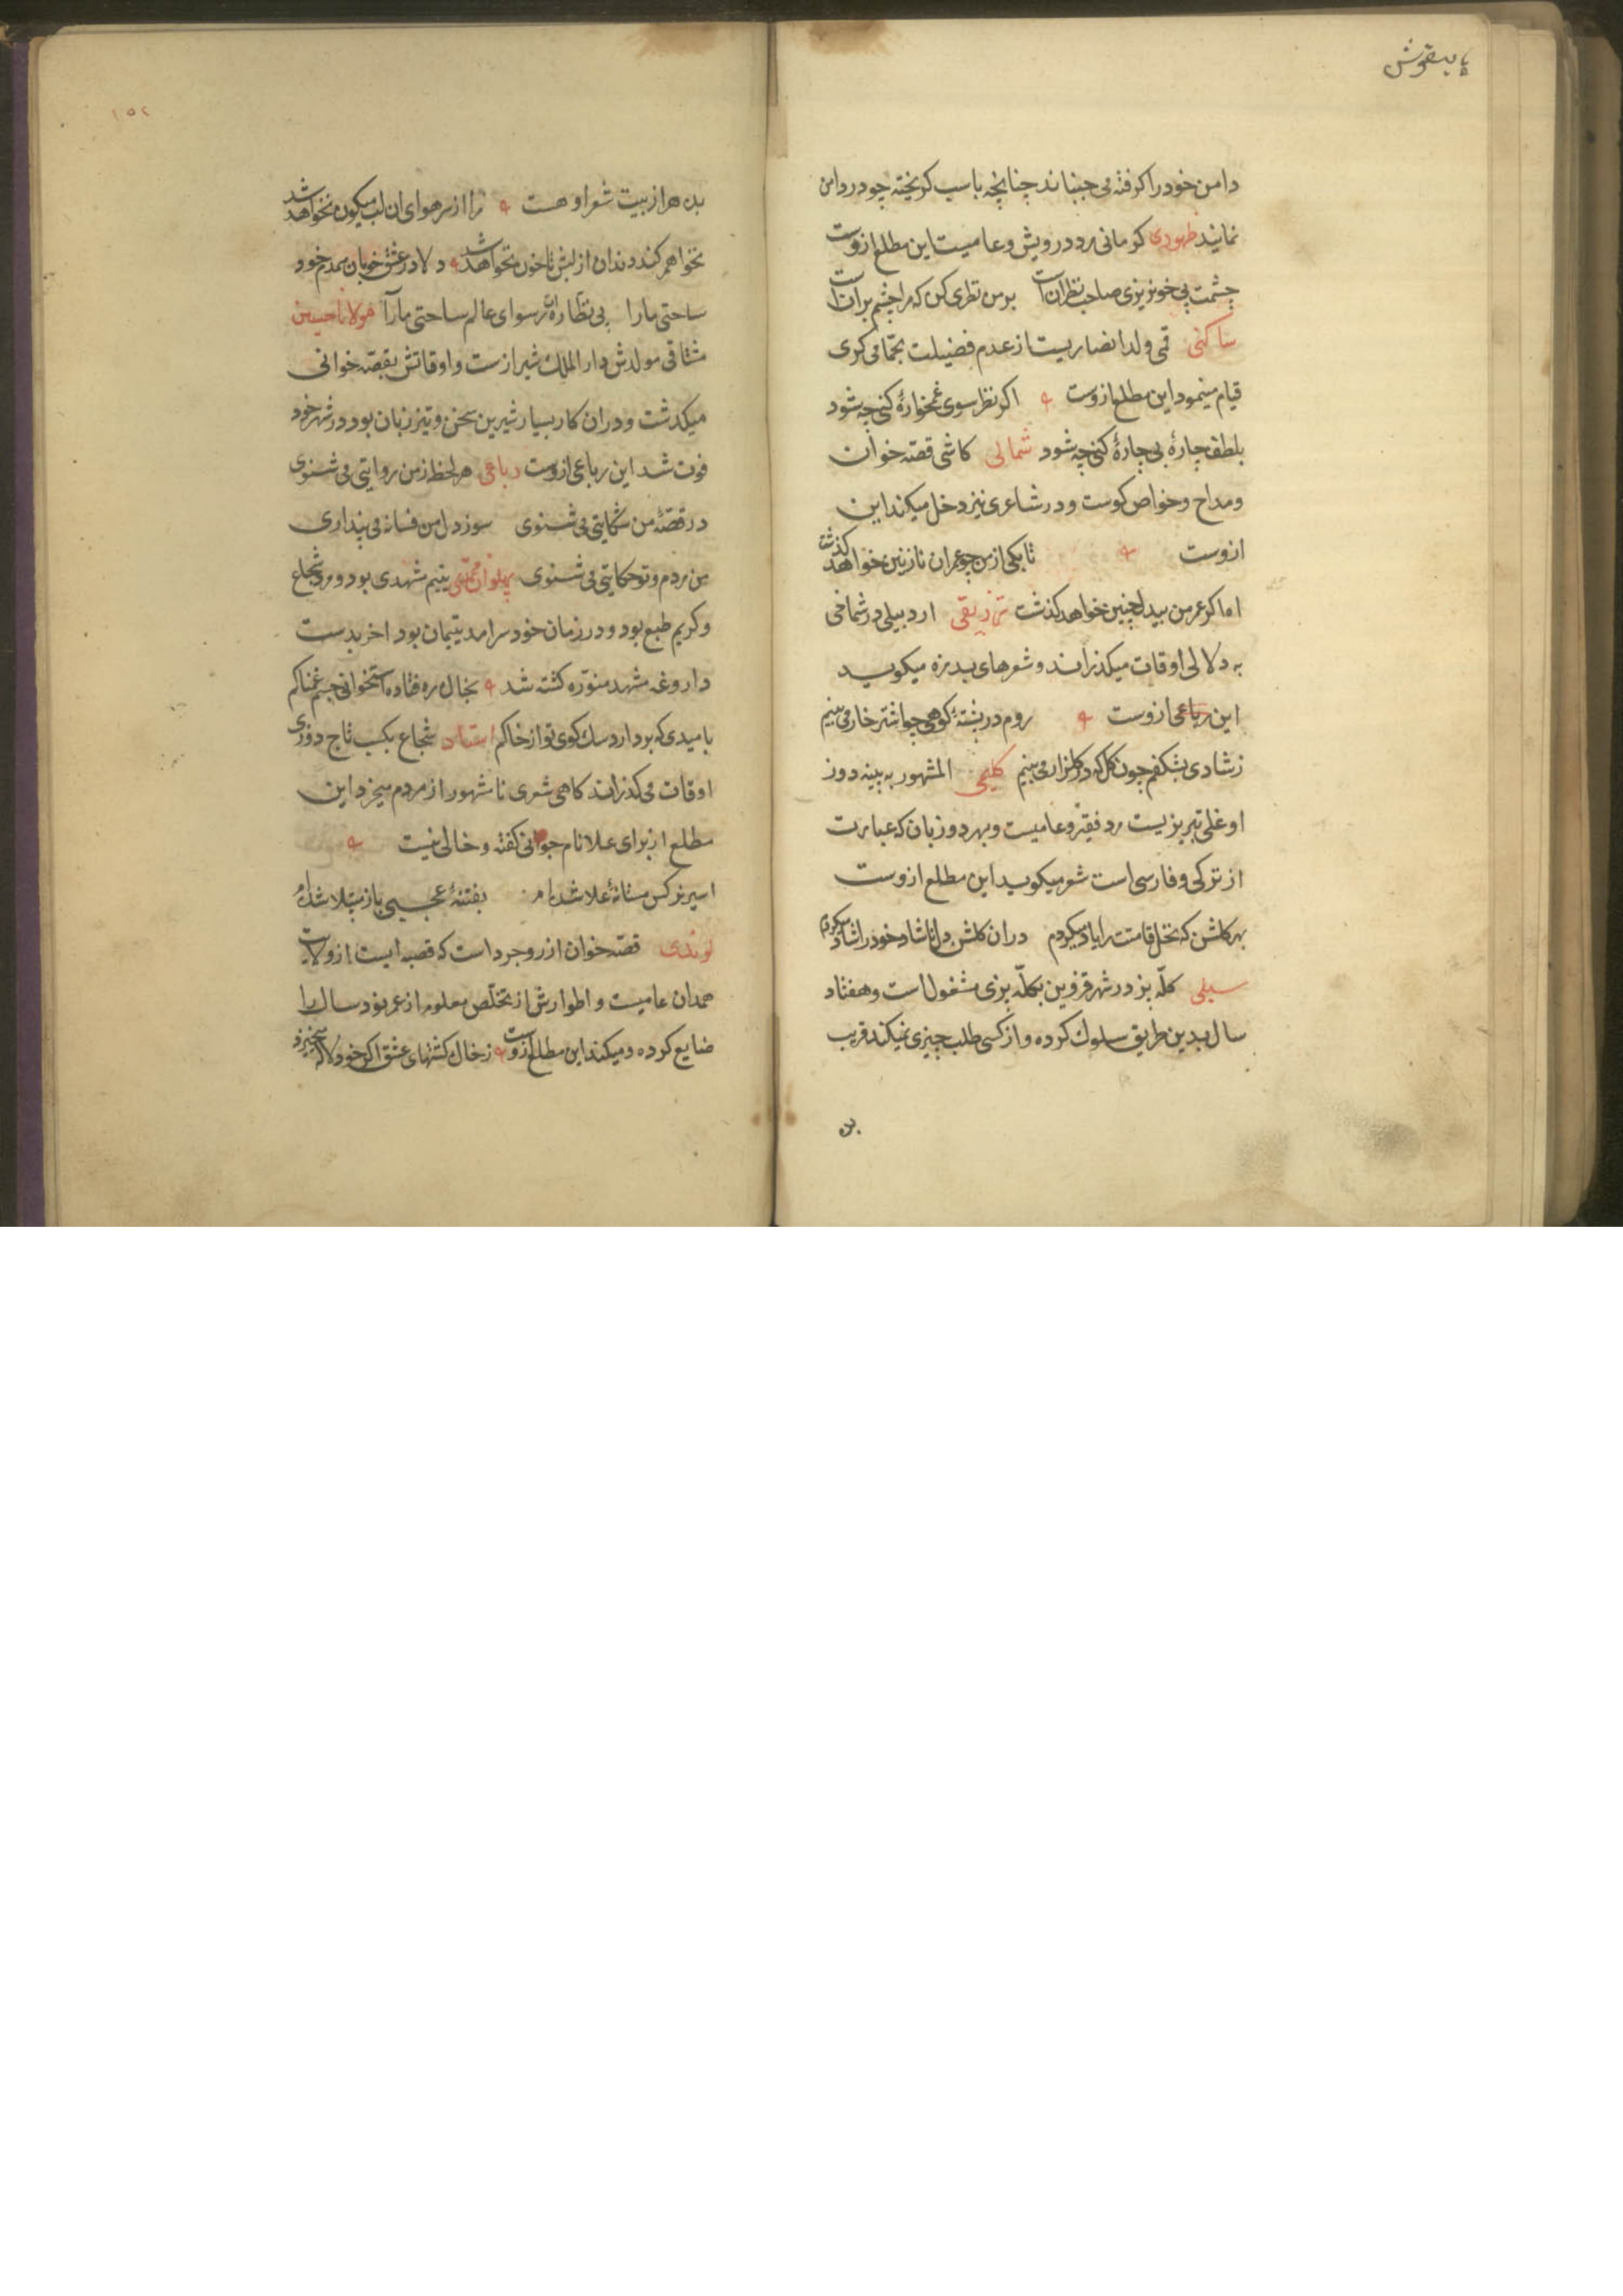 دامن خود را کرفته می جنباند چنانچه با سب کریخته جو در دامن
نمایند ظهوری کرمانی مرد درویش و عامیست این مطلع ازوست
چشمت پی خونریزی صاحب نظران است برمن نظری کن که مرا چشم بران است
ساکنی قمی ولد انصاریست از عدم فضیلت بحمامی کری
قیام مینمود این مطلع ازوست اکر نظر سوی غمخوارهٔ کنی چه شود
بلطف چارهٔ بی چارهٔ کنی چه شود شمالی کاشی قصّه خوان
ومداح وخواص کوست ودر شاعری نیز دخل میکند این
ازوست تا بکی از من چو عمر ان نازنین خواهد کذشت
اه اکر عمر من بیدل چنین خواهد کذشت تزریقی اردبیلی در شماخی
به دلالی اوقات میکذراند و شعرهای بدمزه میکوید
این رباعی ازوست روم در پشتهٔ کوهی چو اشتر خار می بینم
زشادی بشکفم چون کل که در کلزار می بینم کلیمی المشهور به پینه دوز
اوغلی تبریزیست مرد فقیر و عامیست و بهر دو زبان که عبارت
از ترکی و فارسی است شعر میکوید این مطلع ازوست
بهر کلشن که نخل قامتت را یاد میکردم دران کلشن دل ناشاد خود را شاد میکردم
سیلی کلّه پز در شهر قزوین بکلّه پزی مشغول است و هفتاد
سال بدین طریق سلوک کرده و از کسی طلب چیزی نمیکند قریب
بده
۱۵۲
بده هزار بیت شعر او هست مرا از سر هوای ان لب میکون نخواهد شد
نخواهم کند دندان از لبش تا خون نخواهد شد دلا در عشق خوبان همدم خود
ساحتی مارا پی نظّاره رسوای عالم ساحتی مارا مولانا حسین
مشتاقی مولدش دار الملک شیرازست و اوقاتش بقصّه خوانی
میکدشت ودران کار بسیار شیرین سخن و تیز زبان بود در شهر خود
فوت شد این رباعی ازوست رباعی هر لحظه ز من روایتی می شنوی
در قصّهٔ من شکایتی می شنوی سوز دل من فسانه می پنداری
من مردم و تو حکایتی می شنوی پهلوان یتیم مشهدی بود و مرد شجاع
و کریم طبع بود و در زمان خود سرامد یتیمان بود اخر بدست
داروغه مشهد منوّره کشته شد بخاک ره فتاده استخوانی جسم غمناکم
بامیدی که بردارد سک کوی تو از خاکم استاد شجاع بکسب تاج دوزی
اوقات می کدراند کاهی شعری نامشهور از مردم میخرد این
مطلع از برای علا نام جوانی کفته و خالی نیست
اسیر نرکس مستانهٔ علا شده ام بفتنهٔ عجبی باز مبتلا شده ام
لوندی قصّه خوان از روجرد است که قصبه ایست از ولایت
همدان عامیست و اطوارش از تخلّص معلوم از عمر نود سال را
ضایع کرده ومیکند این مطلع ازوست زخاک کشتهای عشق اکر خود لاله میخیزد